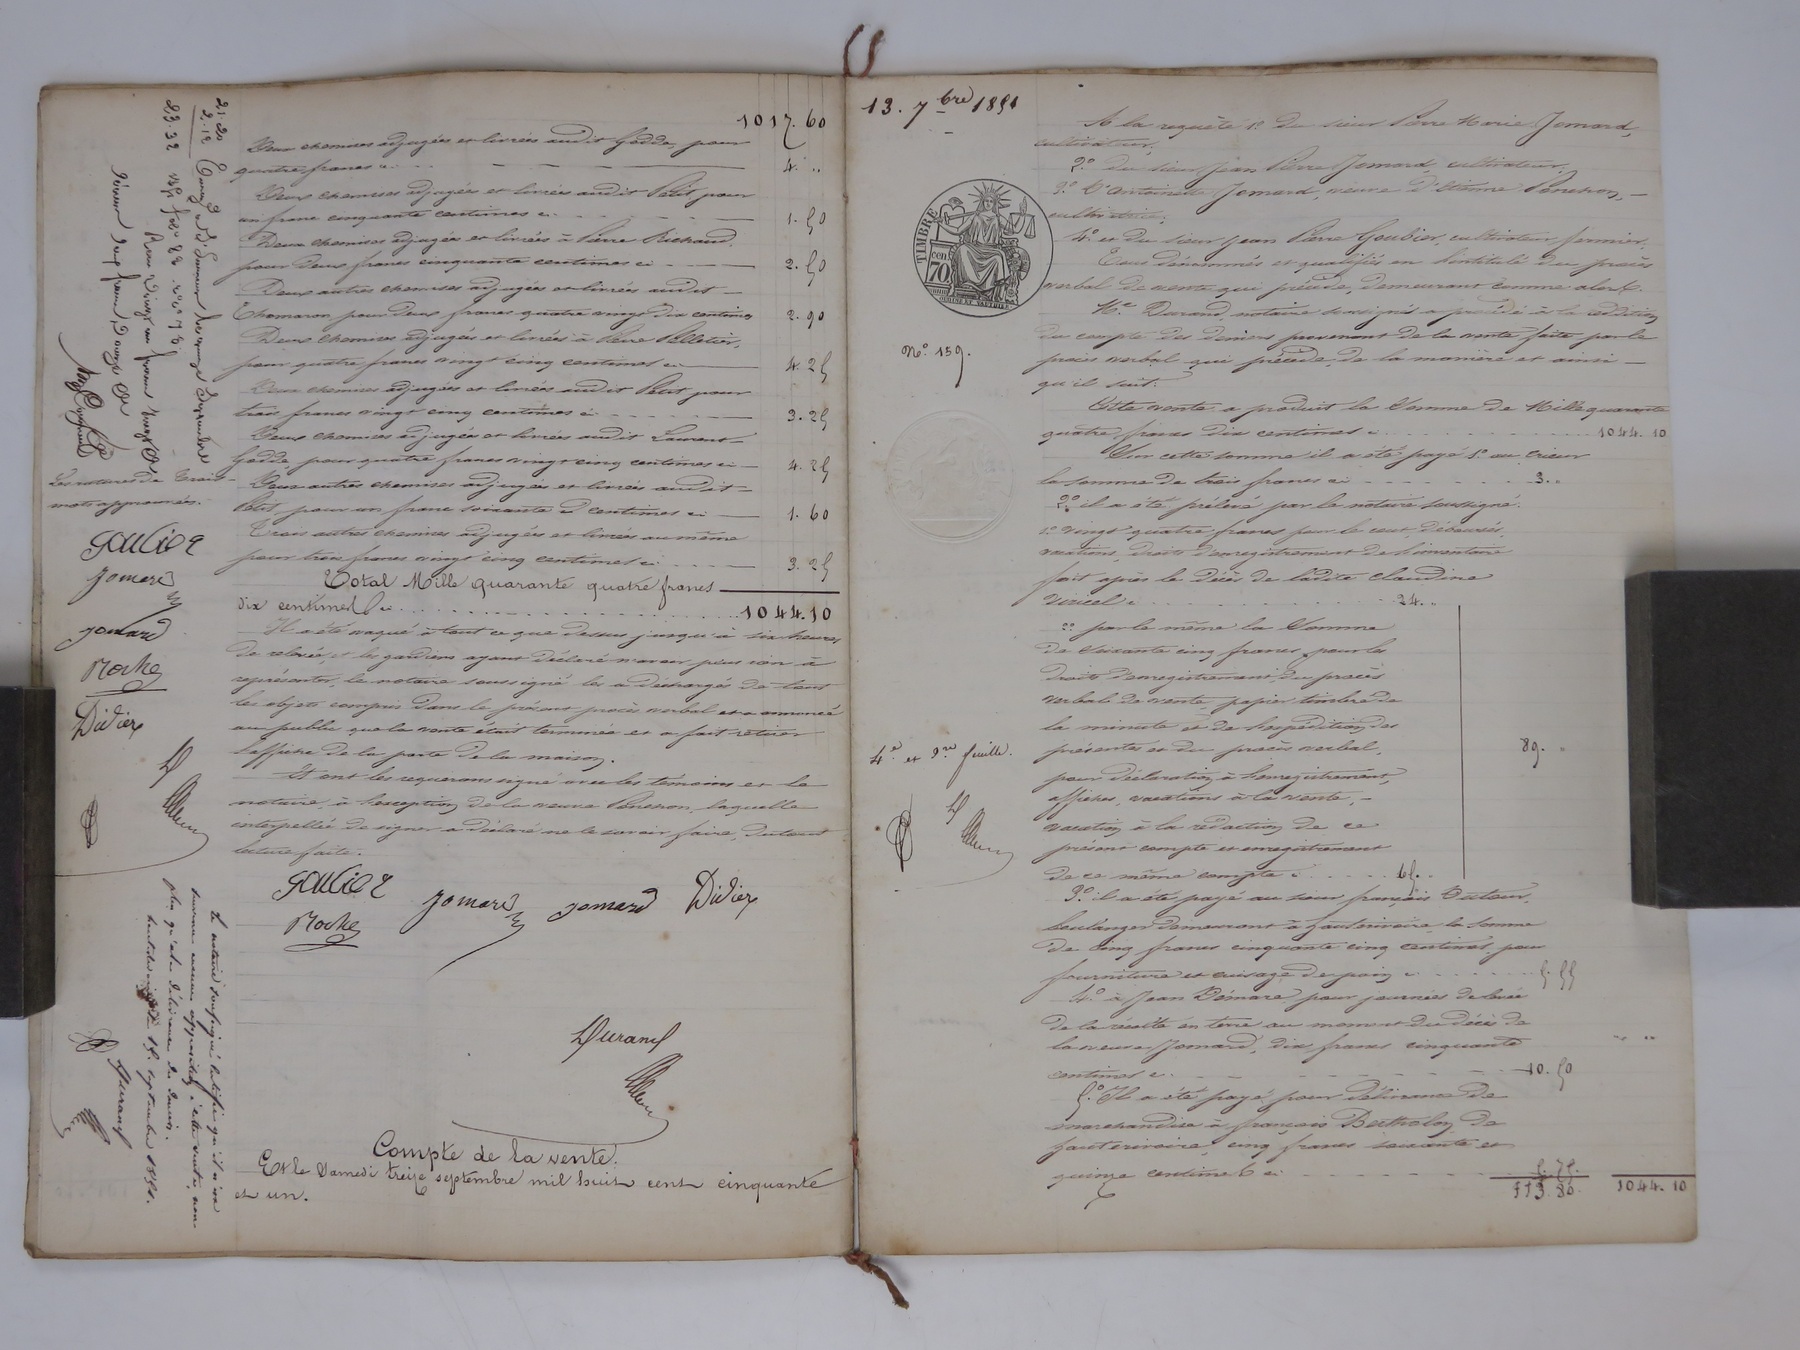 1017. 60
Deux chemises adjugées et livrées audit Gedda, pour
quatre francs ci 4. "
Deux chemises adjugées et livrées audit Petit pour
un franc cinquante centimes ci 1. 50
Deux chemises adjugées et livrées à Pierre Richaud,
pour deux francs cinquante centimes ci 2. 50
Deux autres chemises adjugées et livrées audit
Thomaron pour deux francs quatre vingt dix centimes 2. 90
Deux chemises adjugées et livrées à Pierre Pelletier,
pour quatre francs vingt cinq centimes ci 4. 25
Deux chemises adjugées et livrées audit Petit pour
trois francs vingt cinq centimes ci 3. 25
Deux chemises adjugées et livrées audit Laurent
Gedda pour quatre francs vingt cinq centimes ci 4. 25
Deux autres chemises adjugées et livrées audit
Petit, pour un franc soixante centimes ci 1. 60
Trois autres chemises adjugées et livrées au même
pour trois francs vingt cinq centimes ci 3. 25
Total Mille quarante quatre francs
dix centimes ci 1044.10
Il a été vaqué à tout ce que dessus jusqu'à six heures
de relevée, et les gardiens ayant déclaré n'avoir plus rien à
représenter, le notaire soussigné les a déchargés de tous
les objets compris dans le présent procès verbal et a annoncé
au public que la vente était terminée et a fait retirer
l'affiche de la porte de la maison.
Et ont les requérans signé avec les témoins et le
notaire, à l'exception de la veuve Poncson, laquelle
interpellée de signer a déclaré ne le savoir faire, du tout
lecture faite.
Goubier Jomard Jomard Didier
Roche
Durand
Compte de la vente.
Et le Samedi treize septembre mil huit cent cinquante
et un.
21. 20
2. 12
23. 32
mots approuvés.
Goubier
Jomard
Jomard
Roche
Didier
Le notaire soussigné certifie qu'il n'y a
plus qu'à la délivrance des deniers.
septembre 1851.
Durand
13. 7bre 1851
TIMBRE
70 cen
N° 159.
4e et 9re feuille.
A la requête 1° Du sieur Pierre Marie Jomard,
cultivateur,
2° du sieur Jean Pierre Jomard, cultivateur,
3° D'Antoinette Jomard, veuve d'Etienne Poncson,
cultivatrice,
4° et du sieur Jean Pierre Goubier, cultivateur fermier.
Tous dénommés et qualifiés en l'intitulé du procès
verbal de vente qui précède, demeurant comme alors.
Me Durand, notaire soussigné a procédé à la reddition
du compte des deniers provenant de la vente faite par le
procès verbal qui précède, de la manière et ainsi
qu'il suit.
Cette vente a produit la somme de Mille quarante
quatre francs dix centimes ci 1044. 10
Sur cette somme il a été payé 1° au crieur
la somme de trois francs ci 3. "
2° il a été prélevé par le notaire soussigné
1° vingt quatre francs pour le cout, déboursés,
vacations, droits d'enregistrement de l'inventaire
fait après le décès de ladite Claudine
Viricel ci 24. "
2° par le même la somme
de soixante cinq francs, pour les
droits d'enregistrement du procès
verbal de vente, papier timbré de
la minute et de l'expédition des
présentes et du procès verbal,
pour déclaration à l'enregistrement, 89. "
affiches, vacations à la vente,
vacation à la rédaction de ce
présent compte et enregistrement
de ce même compte ci 65. "
3° il a été payé au sieur françois Tuteur,
boulanger demeurant à hauterivoire la somme
de cinq francs cinquante cinq centimes pour
fourniture et cuisage de pain ci 5. 55
4° à Jean Démare pour journées de levée
de la récolte en terre au moment du décès de
la veuve Jomard, dix francs cinquante
centimes ci 10. 50
5° Il a été payé pour délivrance de
marchandise à françois Bertholon de
hauterivoire, cinq francs soixante et
quinze centimes ci 5. 75.
113. 80. 1044. 10